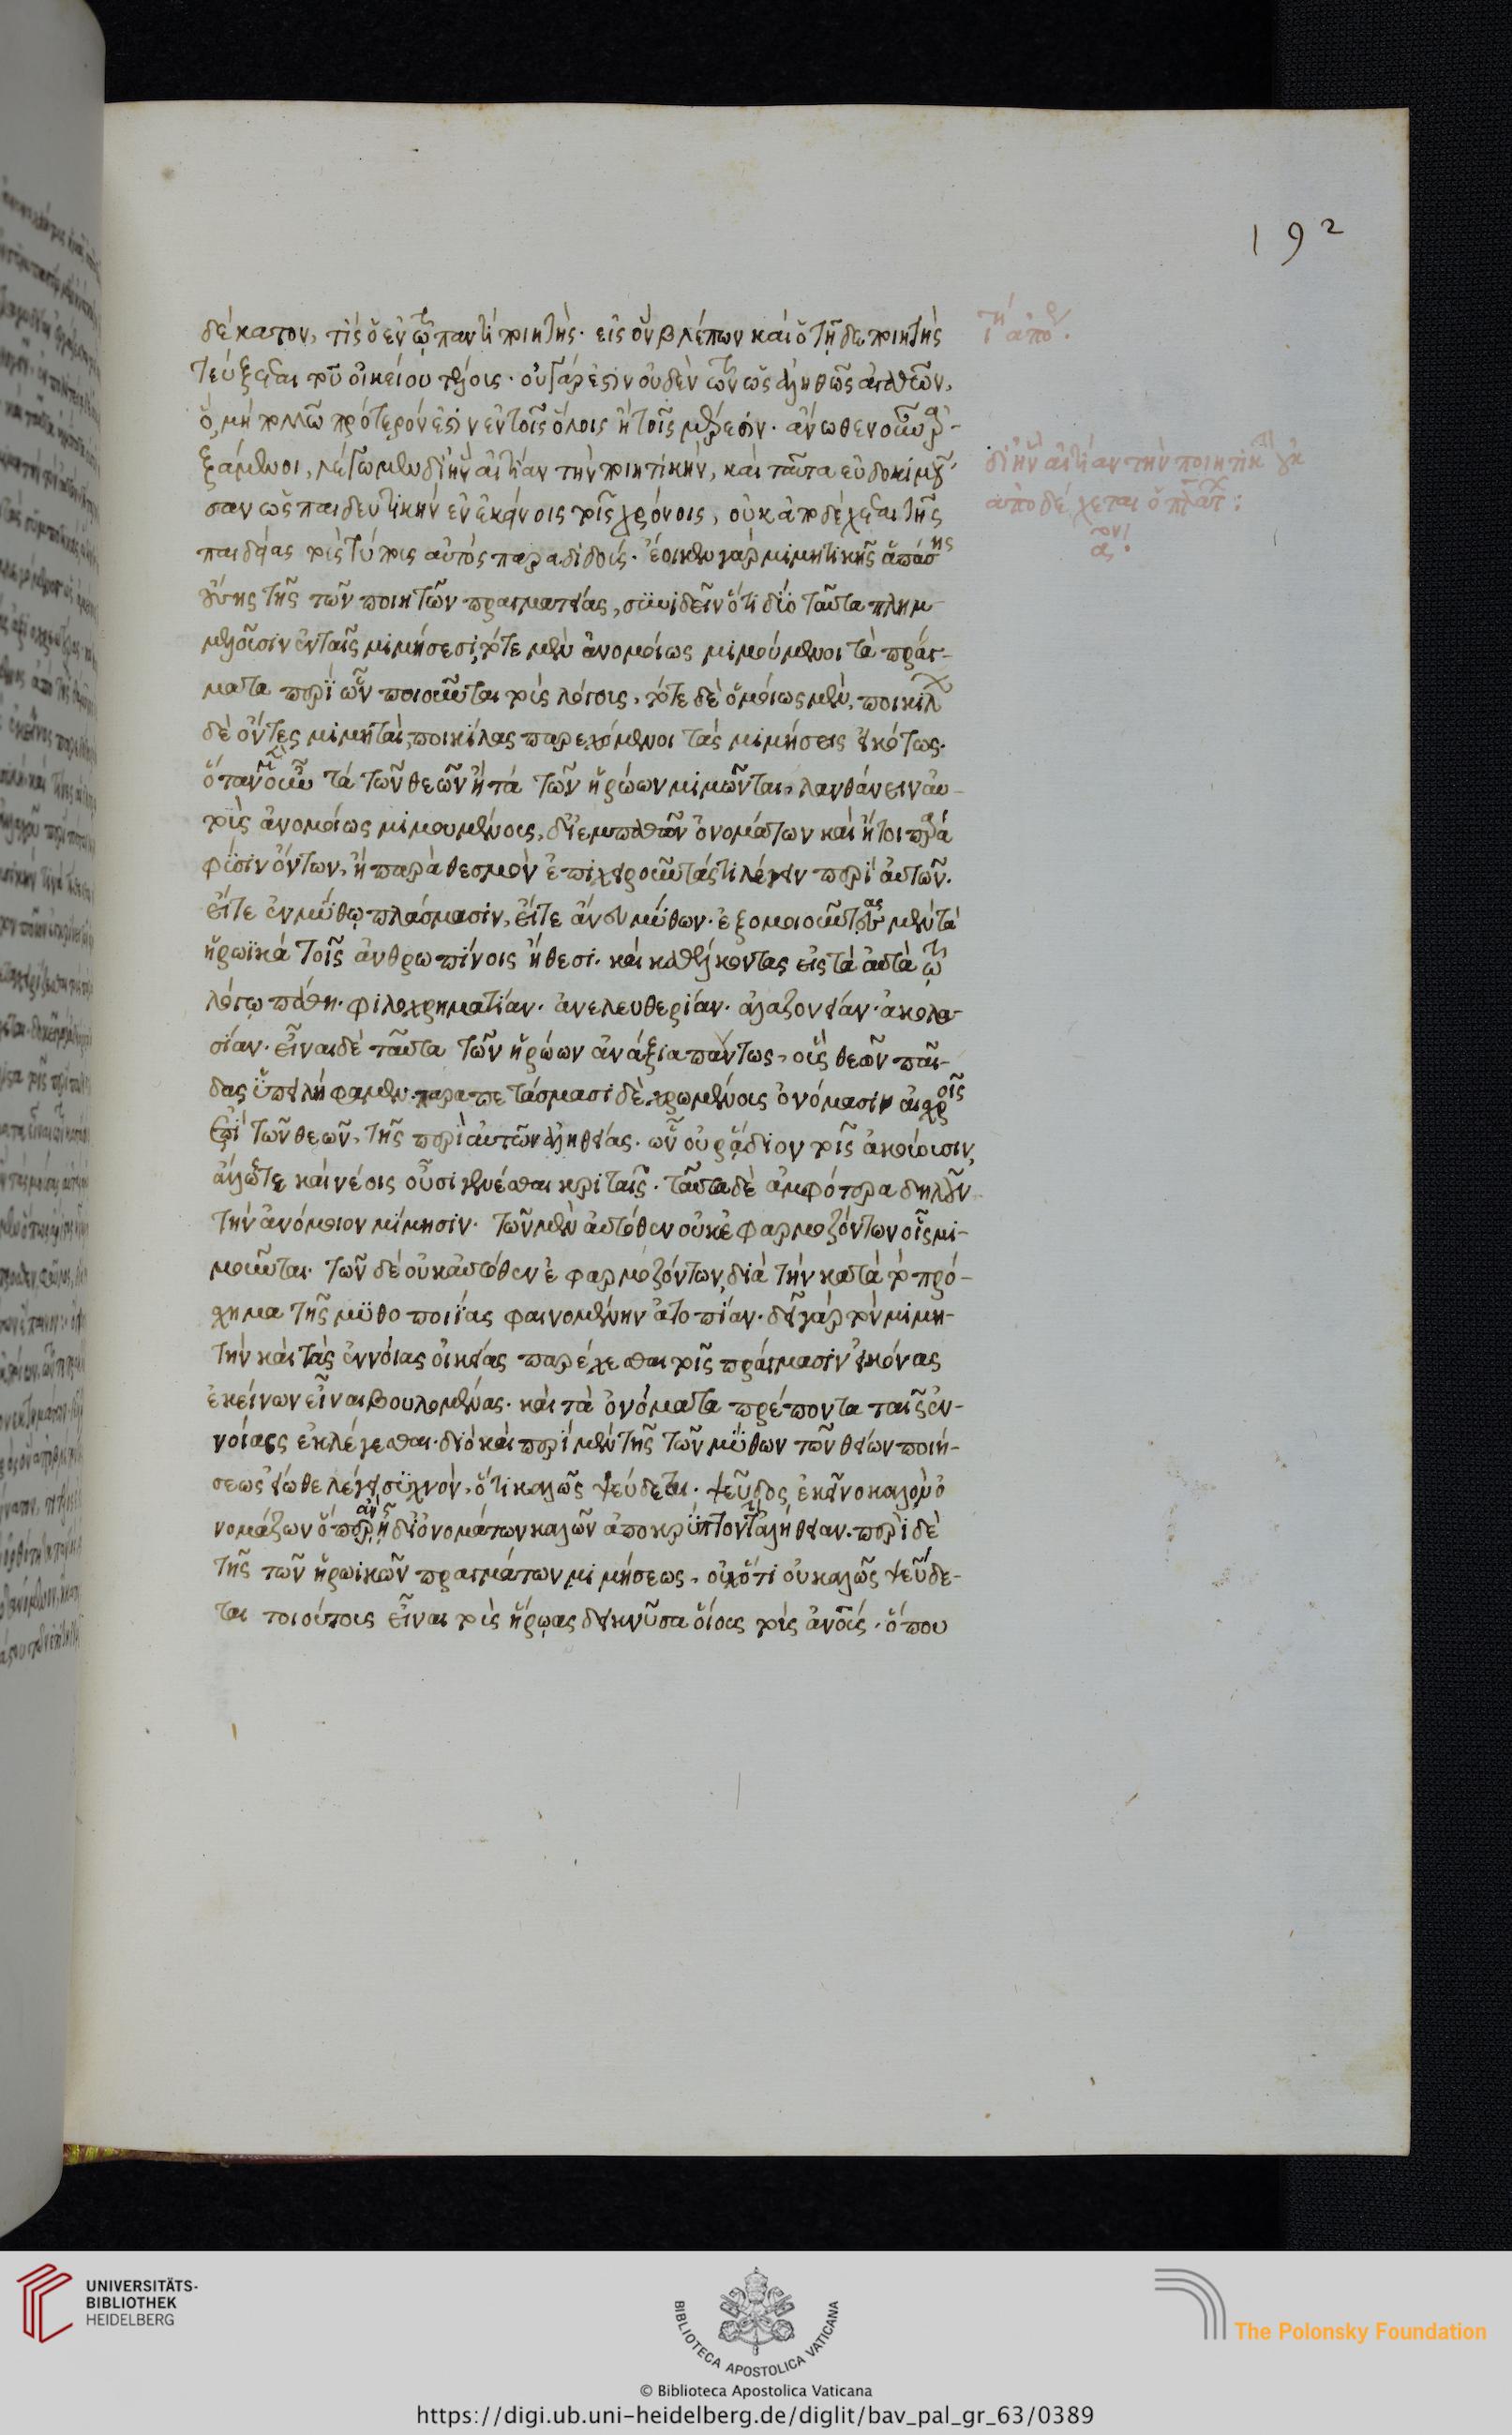 192
δέκατον, τίς ὁ ἐν τῷ παντὶ ποιητής· εἰς ὃν βλέπων καὶ ὁ τῇδε ποιητὴς
τεύξεται τοῦ οἰκείου τέλους· οὐ γάρ ἐστιν οὐδὲν τῶν ὡς ἀληθῶς ἀγαθῶν,
ὃ μὴ πολλῷ πρότερόν ἐστιν ἐν τοῖς ὅλοις ἢ τοῖς μέρεσιν· ἄνωθεν οὖν ἀρ-
ξάμενοι, λέγωμεν δι' ἣν αἰτίαν τὴν ποιητικήν, καὶ ταῦτα εὐδοκιμή-
σαν ὡς παιδευτικὴν ἐν ἐκείνοις τοῖς χρόνοις, οὐκ ἀποδέχεται τῆς
παιδείας τοὺς τύπους αὐτὸς παραδιδούς. ἔοικεν γὰρ μιμητικῆς ἁπάσης
οὔσης τῆς τῶν ποιητῶν πραγματείας, συνιδεῖν ὅτι δύο ταῦτα πλημ-
μελοῦσιν ἐν ταῖς μιμήσεσι, τότε μὲν ἀνομοίως μιμούμενοι τὰ πράγ-
ματα περὶ ὧν ποιοῦνται τοὺς λόγους, τότε δὲ ὁμοίως μέν, ποικίλων
δὲ ὄντες μιμηταί, ποικίλας παρεχόμενοι τὰς μιμήσεις εἰκότως.
ὅταν μὲν οὖν τὰ τῶν θεῶν ἢ τὰ τῶν ἡρώων μιμῶνται, λανθάνειν αὐ-
τοὺς ἀνομοίως μιμουμένους, δι' ἐμπαθῶν ὀνομάτων καὶ ἤτοι παρὰ
φύσιν ὄντων, ἢ παρὰ θεσμὸν ἐπιχειροῦντάς τι λέγειν περὶ αὐτῶν.
εἴτε ἐν μύθῳ πλάσμασιν, εἴτε ἄνευ μύθων· ἐξομοιοῦντας μὲν τὰ
ἡρωϊκὰ τοῖς ἀνθρωπίνοις ἤθεσι· καὶ καθέλκοντας εἰς τὰ αὐτὰ τῷ
λόγῳ πάθη· φιλοχρηματίαν· ἀνελευθερίαν· ἀλαζονείαν· ἀκολα-
σίαν· εἶναι δὲ ταῦτα τῶν ἡρώων ἀνάξια πάντως, οὓς θεῶν παῖ-
δας ὑπειλήφαμεν. παραπετάσμασι δὲ χρωμένους ὀνόμασιν αἰσχροῖς
ἐπὶ τῶν θεῶν, τῆς περὶ αὐτῶν ἀληθείας· ὧν οὐ ῥᾴδιον τοῖς ἀκούουσιν,
ἄλλως τε καὶ νέοις οὖσι γενέσθαι κριταῖς. ταῦτα δὲ ἀμφότερα δηλοῦν
τὴν ἀνόμοιον μίμησιν. τῶν μὲν αὐτόθεν οὐκ ἐφαρμοζόντων οἷς μι-
μοῦνται. τῶν δὲ οὐκ αὐτόθεν ἐφαρμοζόντων, διὰ τὴν κατὰ τὸ πρό-
σχημα τῆς μυθοποιΐας φαινομένην ἀτοπίαν. δεῖ γὰρ τὸν μιμη-
τὴν καὶ τὰς ἐννοίας οἰκείας παρέχεσθαι τοῖς πράγμασιν εἰκόνας
ἐκείνων εἶναι βουλομένας. καὶ τὰ ὀνόματα πρέποντα ταῖς ἐν-
νοίαις ἐκλέγεσθαι. διὸ καὶ περὶ μὲν τῆς τῶν μύθων τῶν θείων ποιή-
σεως εἴωθε λέγειν συχνόν, ὅτι καλῶς ψεύδεται. ψεῦδος ἐκεῖνο καλὸν ὀ-
νομάζων ὅπερ ἂν ᾖ δι' ὀνομάτων καλῶν ἀποκρύπτον τὴν ἀλήθειαν. περὶ δὲ
τῆς τῶν ἡρωικῶν πραγμάτων μιμήσεως, οὐχ ὅτι οὐ καλῶς ψεύδε-
ται τοιούτους εἶναι τοὺς ἥρωας δεικνῦσα οἵους τοὺς ἀνους. ὅπου
δι' ἣν αἰτίαν τὴν ποιητικὴν οὐκ
ἀποδέχεται ὁ πλάτων:
UNIVERSITÄTS-
BIBLIOTHEK
HEIDELBERG
BIBLIOTECA APOSTOLICA VATICANA
The Polonsky Foundation
© Biblioteca Apostolica Vaticana
https://digi.ub.uni-heidelberg.de/diglit/bav_pal_gr_63/0389